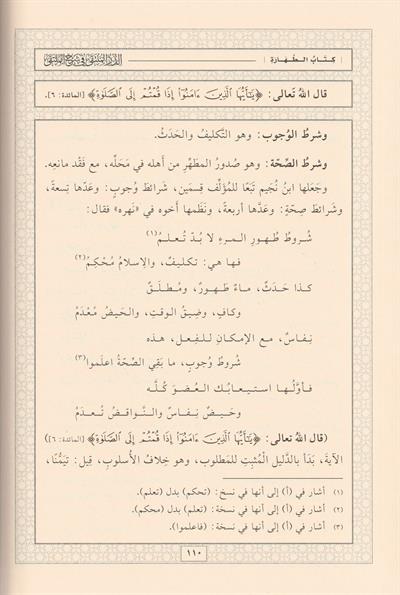 كِتَابُ الطَّهَارَةِ
الدر المنتقى في شرح الملتقى
قال اللهُ تَعالى: ﴿يَٰٓأَيُّهَا ٱلَّذِينَ ءَامَنُوٓا۟ إِذَا قُمْتُمْ إِلَى ٱلصَّلَوٰةِ﴾ [المائدة: ٦].
وشرطُ الوُجوبِ: وهو التَّكليفُ والحَدَثُ.
وشرطُ الصِّحّة: وهو صُدورُ المطَهِّرِ من أهلِه في مَحَلِّه، مع فَقْد مانعِه.
وجَعَلها ابنُ نُجَيم تَبَعًا للمُؤَلِّف قِسمَين، شَرائطَ وُجوبٍ: وعَدَّها تِسعةً،
وشَرائطَ صِحّةٍ: وعَدَّها أربعةً، ونَظَمها أخوه في «نَهره» فقال:
شُروطُ طُهورِ المرءِ لا بُدّ تُعلمُ(١)
فها هي: تكليفٌ، والاِسلامُ مُحْكِمُ(٢)
كذا حَدَثٌ، ماءٌ طَهورٌ، ومُطلَقٌ
وكافٍ، وضِيقُ الوقتِ، والحَيضُ مُعْدَمُ
نِفاسٌ، مع الإمكانِ للفِعل، هذه
شُروطُ وُجوبٍ، ما بَقِي الصِّحّةُ اعلَموا(٣)
فأوَّلُها استيعابُك العُضوَ كُلَّه
وحَيضٌ نِفاسٌ والنَّواقضُ تُعدَمُ
(قال اللهُ تعالى: ﴿يَٰٓأَيُّهَا ٱلَّذِينَ ءَامَنُوٓا۟ إِذَا قُمْتُمْ إِلَى ٱلصَّلَوٰةِ﴾ [المائدة: ٦])
الآيةَ، بَدَأ بالدَّليل المُثبِتِ للمَطلوب، وهو خِلافُ الأُسلوبِ، قِيل: تَيَمُّنًا،
(١) أشار في (أ) إلى أنها في نسخ: (تحكم) بدل (تعلم).
(٢) أشار في (أ) إلى أنها في نسخة: (تعلم) بدل (محكم).
(٣) أشار في (أ) إلى أنها في نسخة: (فاعلموا).
١١٠